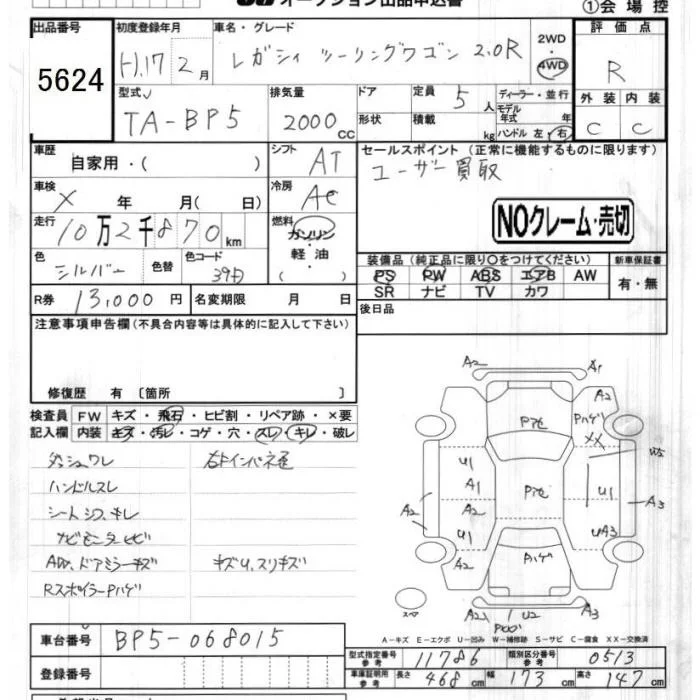 オークション出品申込書
①会場控
出品番号 5624
初度登録年月 H.17 2月
車名・グレード レガシィ ツーリングワゴン 2.0R
2WD 4WD
評価点 R
外装 内装
C C
型式 TA-BP5
排気量 2000cc
ドア
形状
定員 5人
積載 kg
ディーラー・並行
モデル年式 年
ハンドル 左・右
車歴 自家用・( )
シフト AT
セールスポイント(正常に機能するものに限ります)
ユーザー買取
車検 X 年 月( 日)
冷房 AC
NOクレーム・売切
走行 10万2千870km
燃料 ガソリン
軽油
( )
色 シルバー
色替
色コード 39D
装備品(純正品に限り○をつけてください)
PS PW ABS エアB AW
SR ナビ TV カワ
新車保証書
有・無
R券 13,000円
名変期限 月 日
後日品
注意事項申告欄(不具合内容等は具体的に記入して下さい)
修復歴 有〔箇所 〕
検査員 FW キズ・飛石・ヒビ割・リペア跡・×要
記入欄 内装 キズ・汚レ・コゲ・穴・スレ・キレ・破レ
ダッシュワレ
ハンドルスレ
シートシワ、キレ
ナビモニターヒビ
AW、ドアミラーキズ キズU、スリキズ
RスポイラーPハゲ
A2 A1
A2
Pハゲ
XX
P他
W5
U1
A1
P他
U1
A3
A2
A2
U1
UA3
A2
Pハゲ
スペア
A2 U2 A3
A-キズ E-エクボ U-凹み W-補修跡 S-サビ C-腐食 XX-交換済
車台番号 BP5-068015
登録番号
型式指定番号 参考 11786
類別区分番号 参考 0513
車庫証明用 参考 長さ 468cm 幅 173cm 高さ 147cm